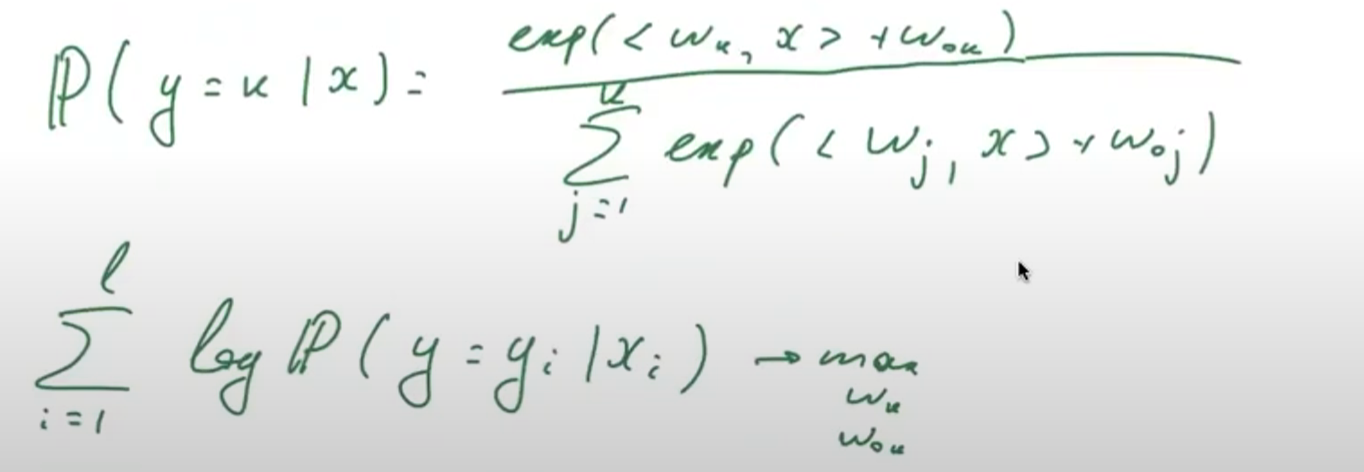 P(y=k|x) = exp(<w_k, x> + w_{0k}) / \sum_{j=1}^{K} exp(<w_j, x> + w_{0j})
\sum_{i=1}^{l} log P(y=y_i|x_i) → max_{w_k, w_{0k}}